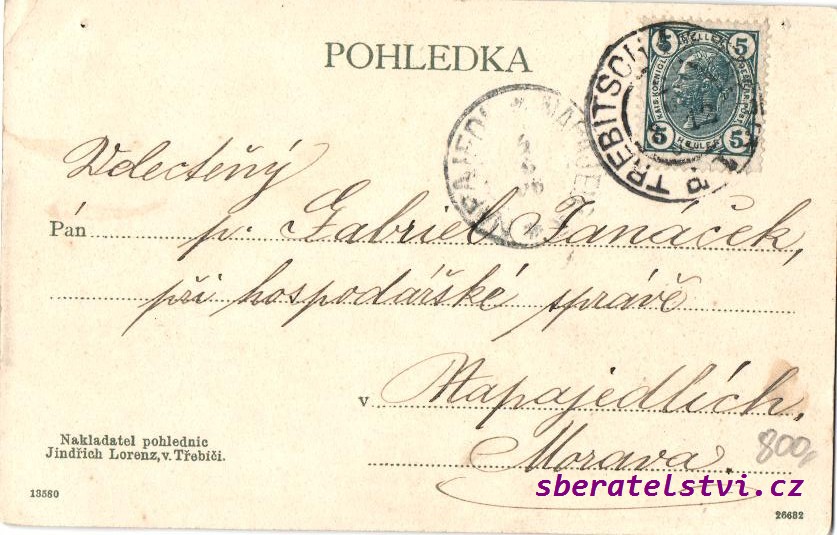 POHLEDKA
5 HELLER 5
5 HELLER 5
TREBITSCH
NAPAJEDL
Velectěný
Pán p. Gabriel Janáček,
při hospodářské správě
v Napajedlích,
Morava.
800,
Nakladatel pohlednic
Jindřich Lorenz, v. Třebíči.
sberatelstvi.cz
13580
26682